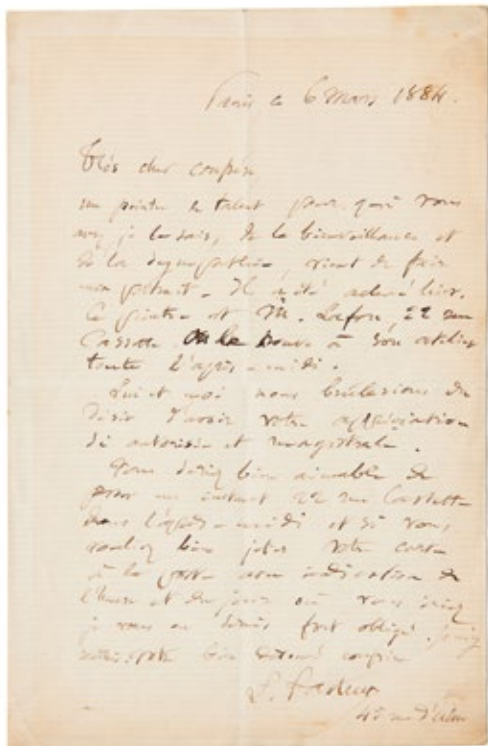 Paris ce 6 Mars 1884.
Très cher confrère
un peintre de talent pour qui vous
avez, je le sais, de la bienveillance et
de la sympathie, vient de faire
mon portrait. Il a été achevé hier.
Ce peintre est M. Lafon, 22 rue
Cassette. On le trouve à son atelier
toute l'après-midi.
Lui et moi nous brûlerions du
désir d'avoir votre appréciation
si autorisée et magistrale.
Vous seriez bien aimable de
passer un instant 22 rue Cassette
dans l'après-midi et si vous
vouliez bien jeter votre carte
à la poste avec indication de
l'heure et du jour où vous iriez
je vous en serais fort obligé.
votre bien dévoué confrère
L. Pasteur
45 rue d'Ulm